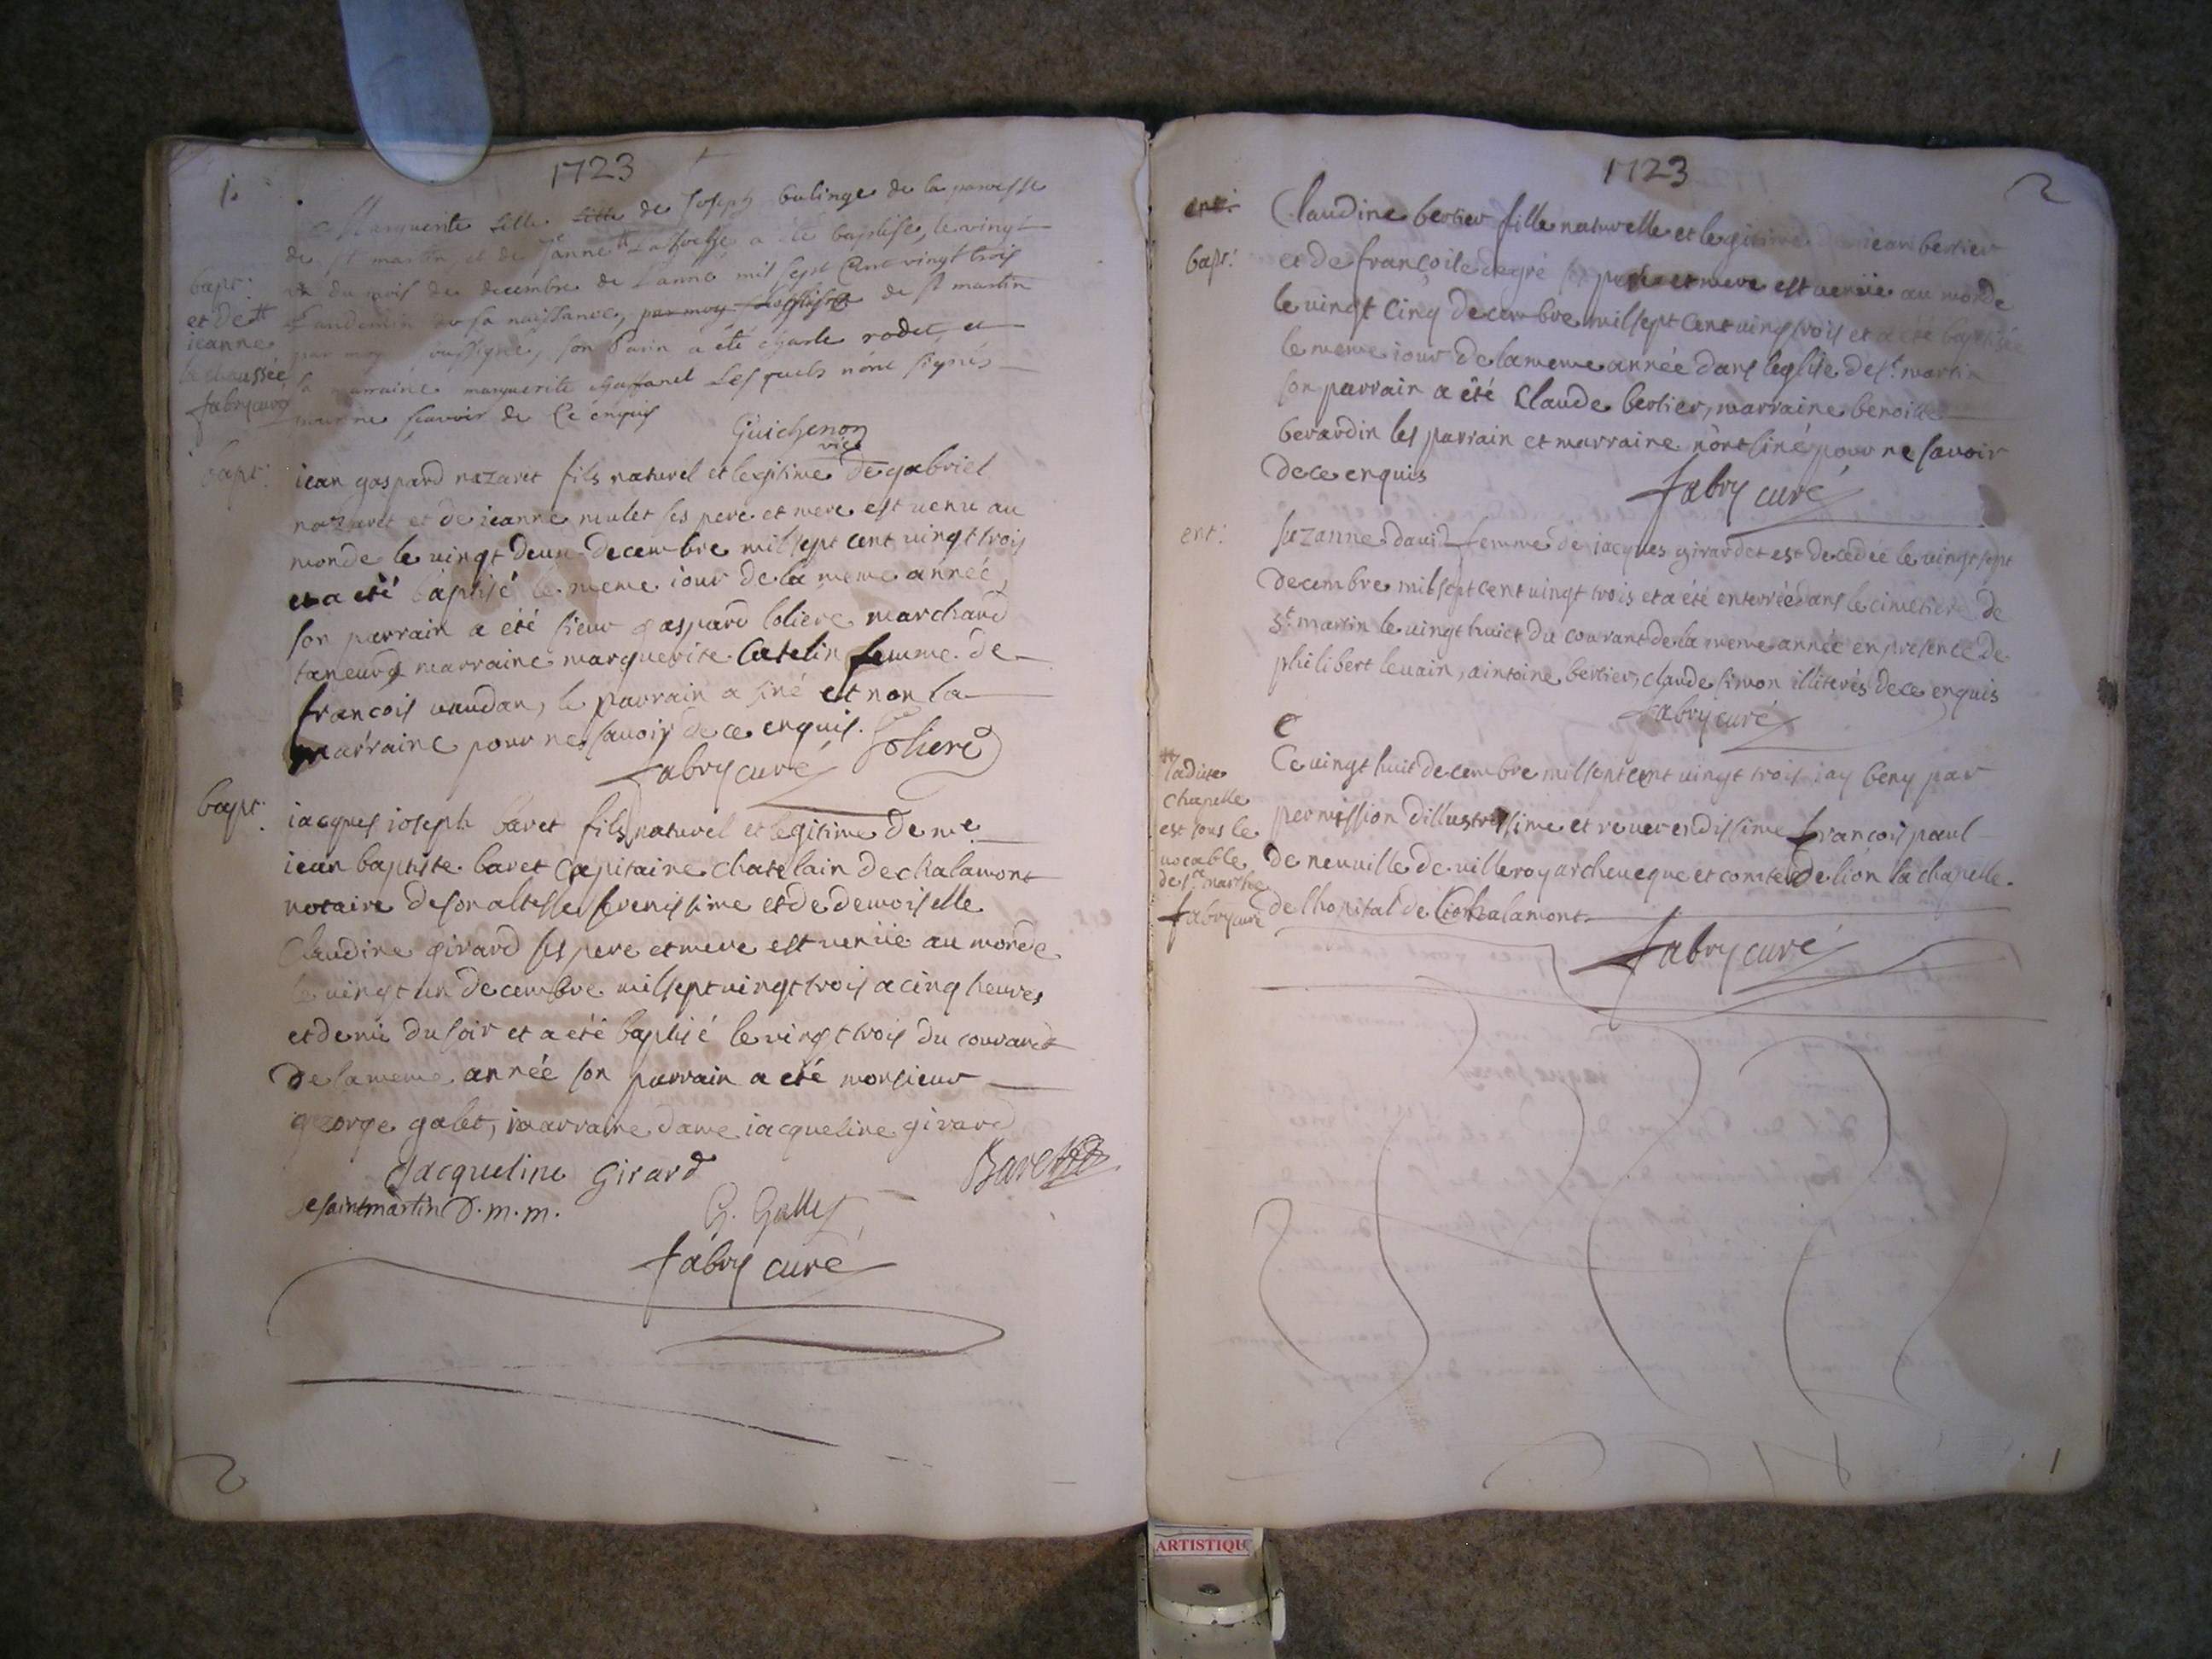 1723
1.
Marguerite fille de Joseph bulinge de la paroisse
de st martin et de Janne a été baptisé, le vingt
du mois de decembre de L'anné mil sept Cent vingt trois
Landemain de sa naissance, par moy de st martin
par moy soussigné, son Parin a été rodet et
sa marraine marguerite Lesquels n'ont signés
pour ne scavoir de Ce enquis
Guichenon
vice
bapt:
et de
ieanne
la chaussée
fabry curé
bapt:
iean gaspard nazaret fils naturel et legitime de gabriel
nazaret et de ieanne mulet ses pere et mere est venu au
monde le vingt deux decembre mil sept cent vingt trois
et a été baptisé le meme iour de la meme année,
son parrain a été sieur gaspard loliere marchand
taneur marraine marguerite Catelin femme de
francois vaudan, le parrain a siné et non la
marraine pour ne savoir de ce enquis. Loliere
fabry curé
bapt:
iacques ioseph baret fils naturel et legitime de me
iean baptiste baret Capitaine chatelain de chalamont
notaire de son altesse serenissime et de demoiselle
Claudine girard ses pere et mere est venüe au monde
le vingt un decembre mil sept vingt trois a cinq heures
et demie du soir et a été baptisé le vingt trois du courant
de la meme année son parrain a été monsieur
george galet, marraine dame iacqueline girard
Jacqueline Girard
Baret
Desaintmartin D.m.m.
G. Gallet
fabry curé
2
1723
2
ent:
bapt:
Claudine bertier fille naturelle et legitime iean bertier
et de françoise degré pere et mere est venüe au monde
le vingt cinq decembre mil sept cent vingt trois et a été baptisée
le meme iour de la meme année dans l'eglise de st martin
son parrain a été Claude bertier, marraine benoite
berardin les parrain et marraine n'ont siné pour ne savoir
de ce enquis
fabry curé
ent:
suzanne david femme de iacques girardet est decedée le vingt sept
decembre mil sept cent vingt trois et a été enterrée dans le cimetiere de
st martin le vingt huict du courant de la meme année en presence de
philibert levain, aintoine bertier, claude simon illiterés de ce enquis
fabry curé
Ce vingt huit decembre mil sept cent vingt trois iay beny par
permission d'illustrissime et reverendissime francois paul
de neuville de villeroy archeveque et comte de lion la chapelle
de lhopital de chalamont
fabry curé
ladite
chapelle
est sous le
vocable
de ste marthe
fabry curé
1
ARTISTIQU